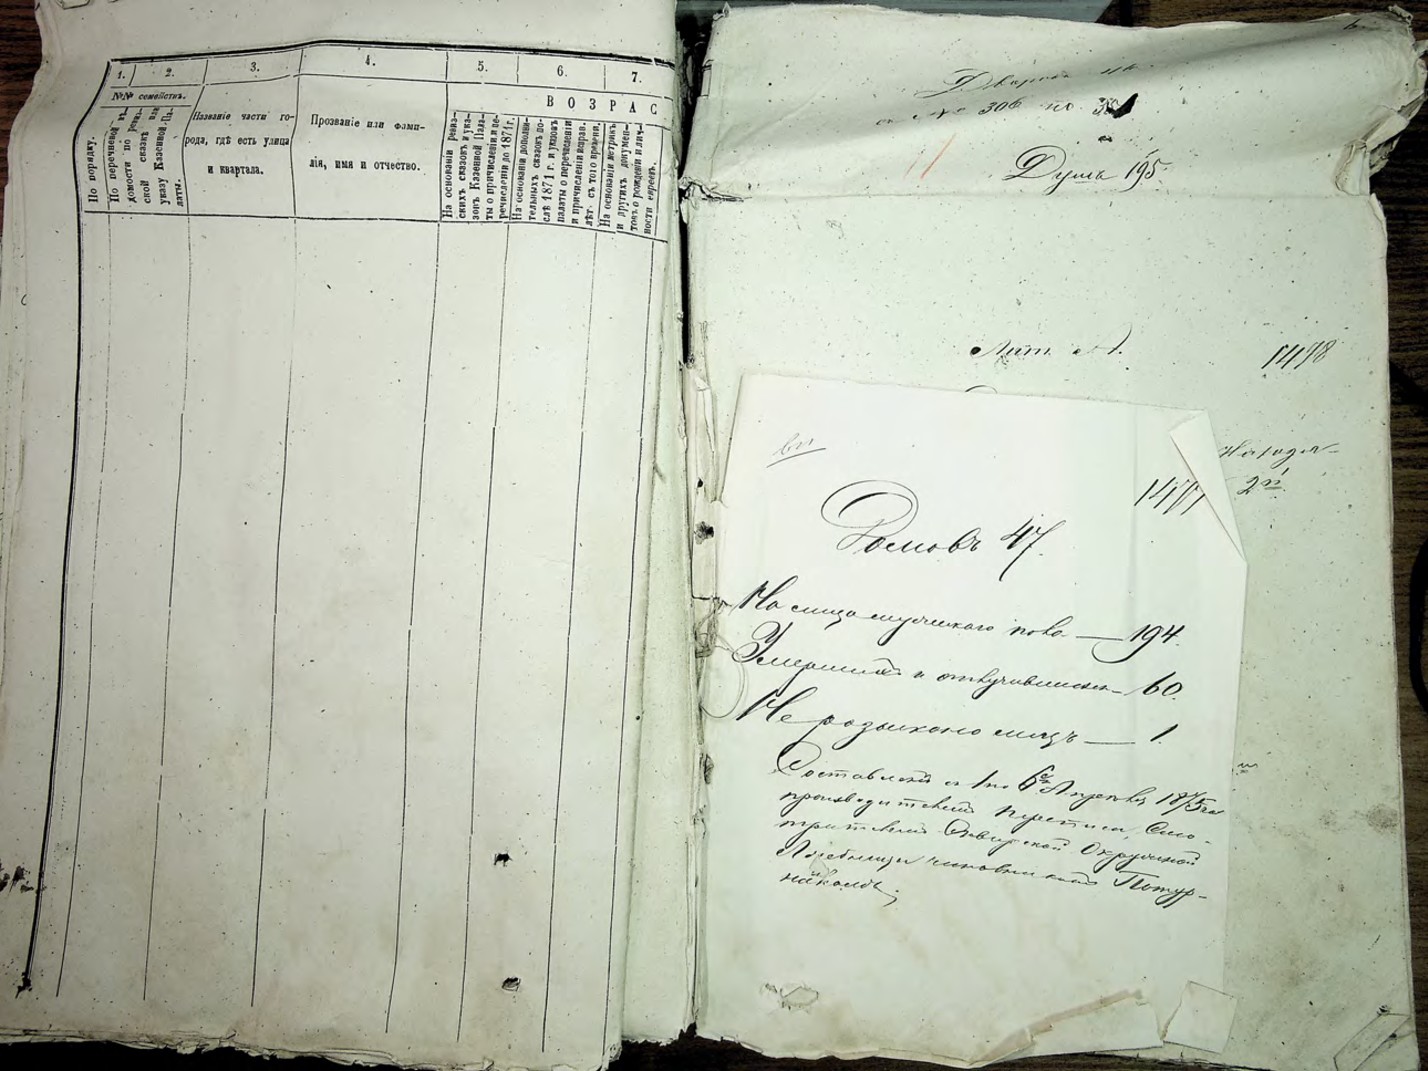 1. 2. 3. 4. 5. 6. 7.
№№ семействъ.
В О З Р А С
По порядку.
По перечневой вѣ-
домости по ревиз-
ской сказкѣ или
указу Казенной Па-
латы.
Названіе части го-
рода, гдѣ есть улица
и квартала.
Прозваніе или фами-
лія, имя и отчество.
На основаніи ревиз-
скихъ сказокъ и ука-
зовъ Казенной Пала-
ты о причисленіи и пе-
речисленіи до 1871 г.
На основаніи дополни-
тельныхъ сказокъ по-
слѣ 1871 г. и указовъ
палаты о перечисленіи
и причисленіи исправ.
лѣт. съ того времени.
На основаніи метрик.
и другихъ докумен-
товъ о рожденіи и лич-
ности евреевъ.
с № 306 по
Душъ 195
Лит. А.
1478
2й
1477
Домовъ 47.
На лицо мужскаго пола — 194.
Умершихъ и отлучившихся — 60.
Не розыскано лицъ — 1.
Составленъ с 1 по 6е Апрѣля 1875 га
производителемъ переписи, Смо-
трителемъ Окружной
Лѣчебницы чиновникомъ Потур-